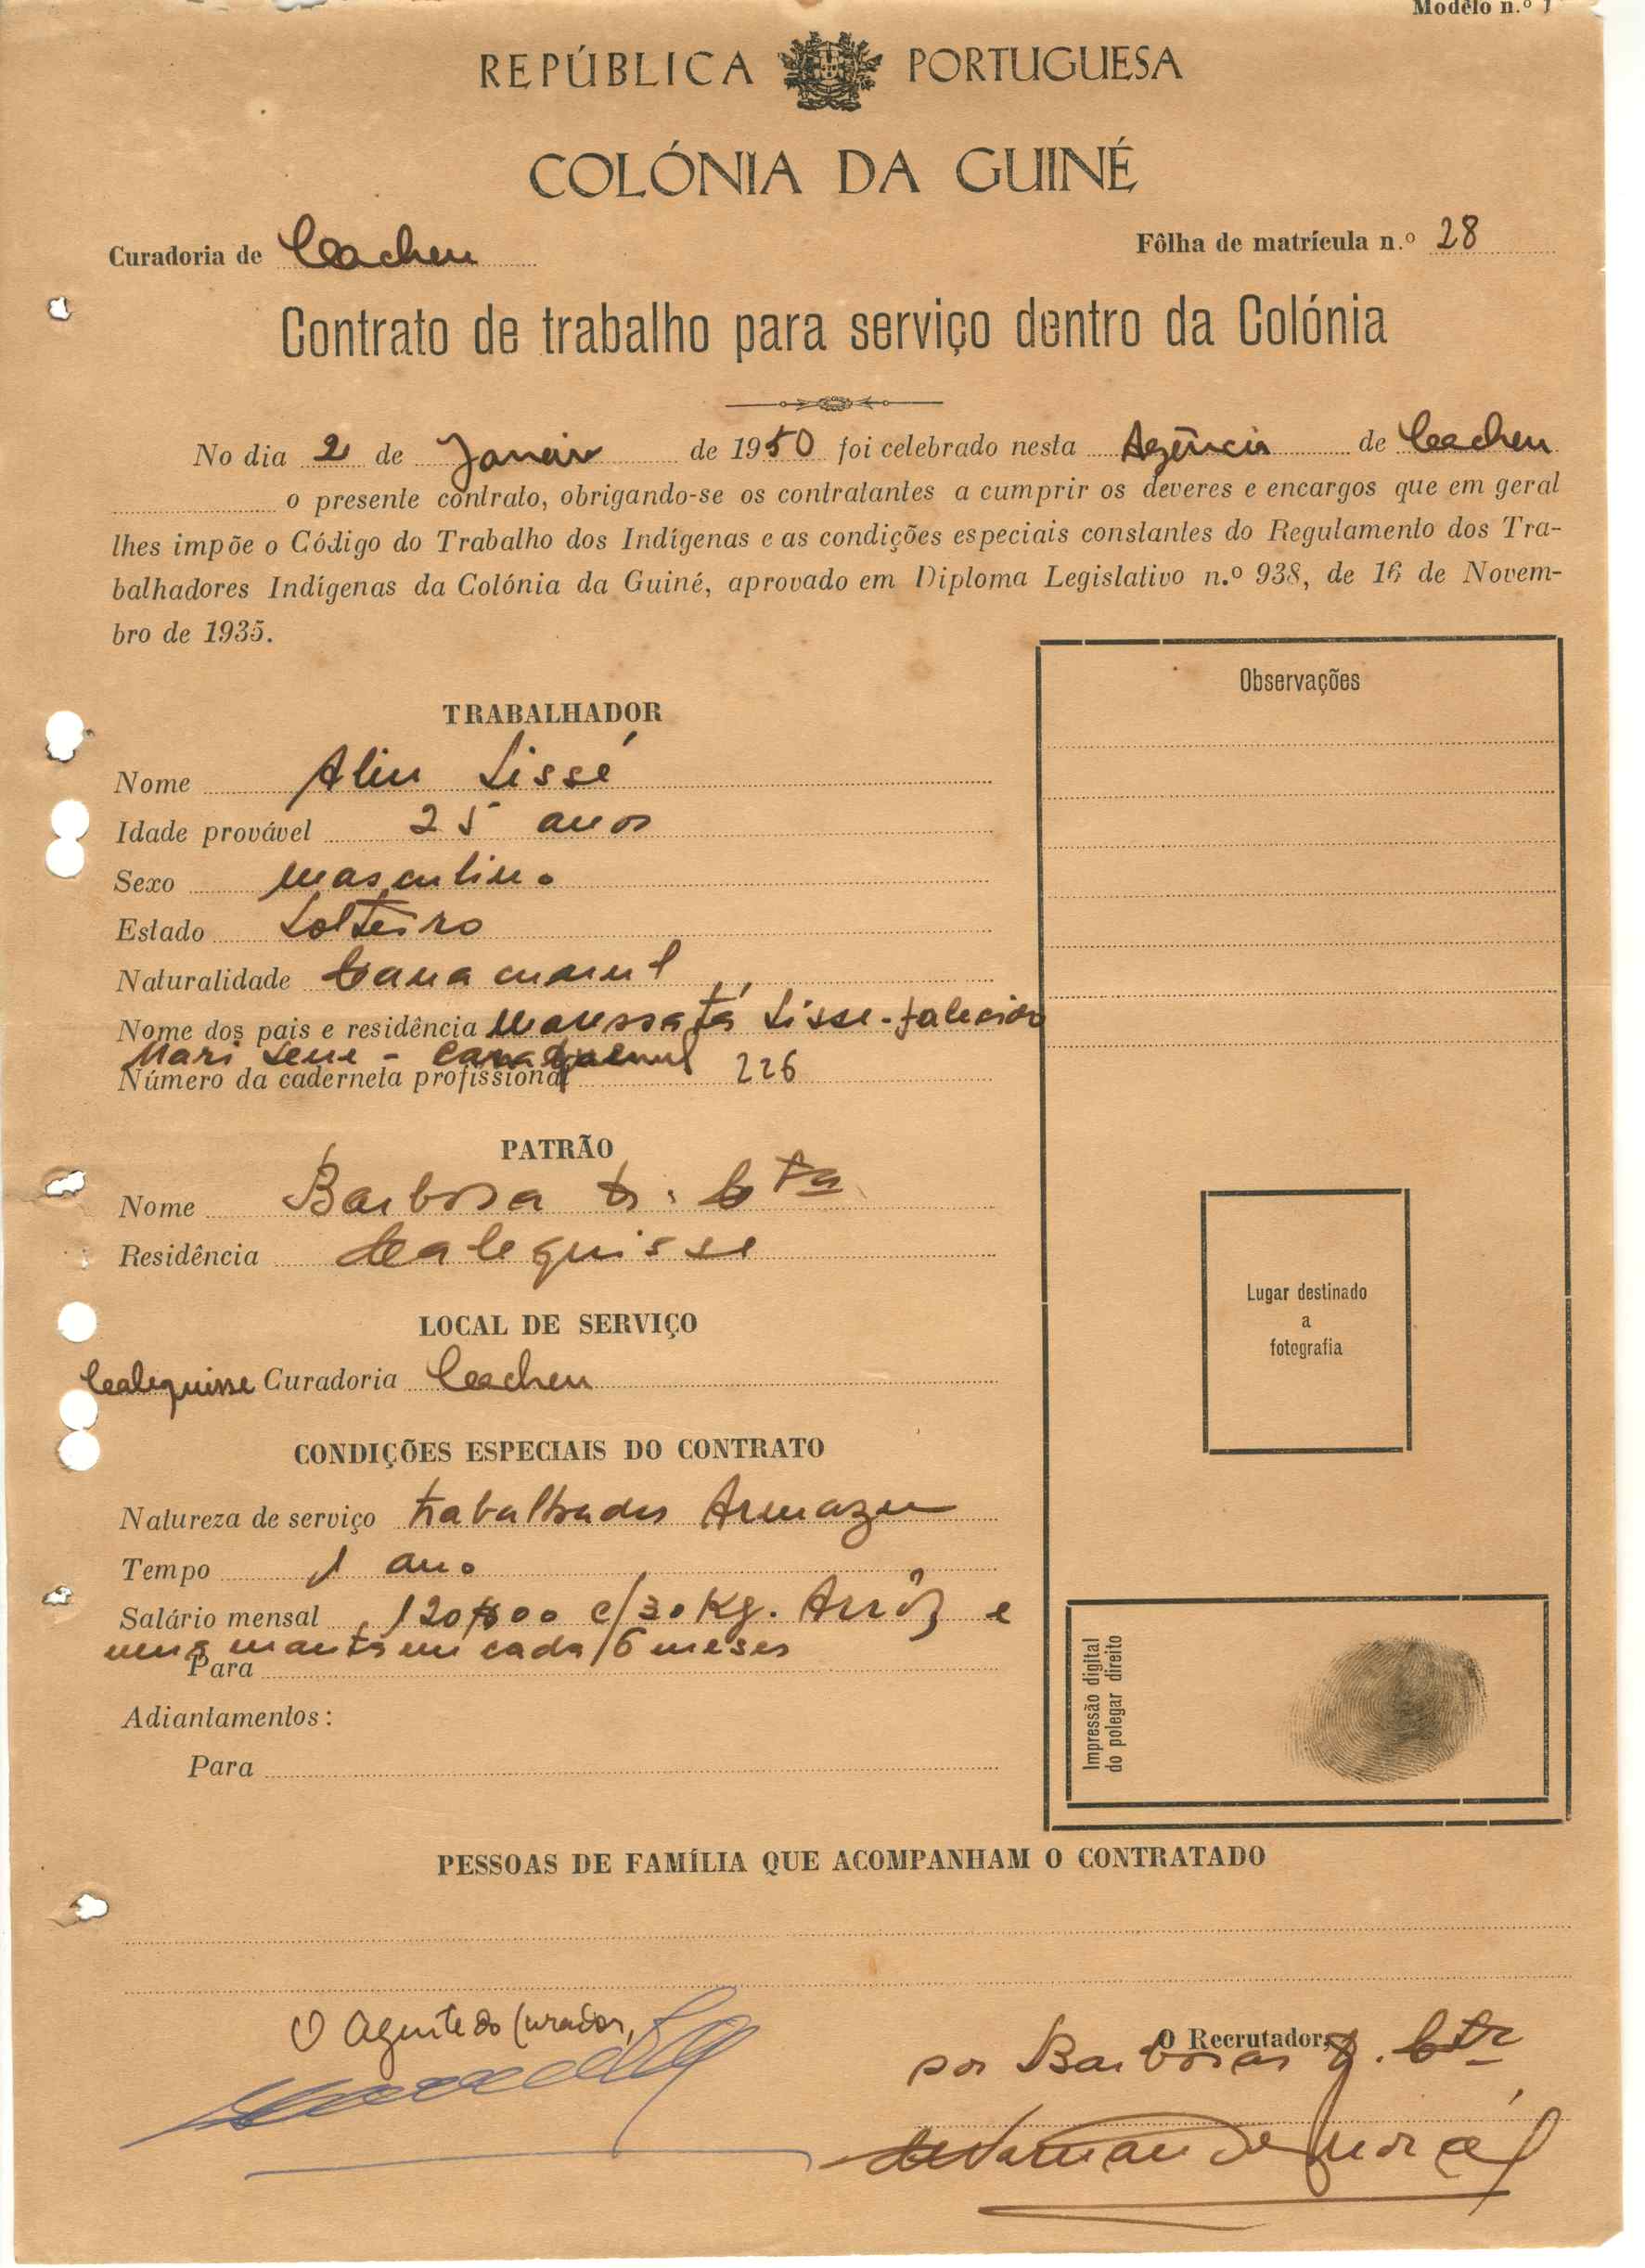 Modêlo n.º 1
REPÚBLICA PORTUGUESA
COLÓNIA DA GUINÉ
Curadoria de Cacheu Fôlha de matrícula n.º 28
Contrato de trabalho para serviço dentro da Colónia
No dia 2 de Janeiro de 1950 foi celebrado nesta Agência de Cacheu
o presente contrato, obrigando-se os contratantes a cumprir os deveres e encargos que em geral
lhes impõe o Código do Trabalho dos Indígenas e as condições especiais constantes do Regulamento dos Tra-
balhadores Indígenas da Colónia da Guiné, aprovado em Diploma Legislativo n.º 938, de 16 de Novem-
bro de 1935.
Observações
TRABALHADOR
Nome Aliu Sissé
Idade provável 25 anos
Sexo masculino
Estado Solteiro
Naturalidade
Nome dos pais e residência Sisse - falecido
Mari Sene -
Número da caderneta profissional 226
PATRÃO
Nome Barbosa & Cta
Residência Calequisse
LOCAL DE SERVIÇO
Calequisse Curadoria Cacheu
Lugar destinado
a
fotografia
CONDIÇÕES ESPECIAIS DO CONTRATO
Natureza de serviço trabalhador Armazem
Tempo 1 ano
Salário mensal 120$00 c/30 Kg. Arrôz e
uma manta em cada 6 meses
Para
Adiantamentos:
Para
Impressão digital
do polegar direito
PESSOAS DE FAMÍLIA QUE ACOMPANHAM O CONTRATADO
O Agente do Curador,
O Recrutador,
por Barbosas & Cta